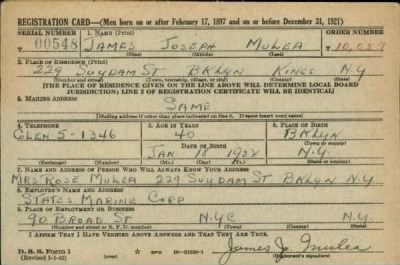 REGISTRATION CARD—(Men born on or after February 17, 1897 and on or before December 31, 1921)
SERIAL NUMBER 1. NAME (Print) ORDER NUMBER
00548 JAMES JOSEPH MULEA 10,057
(First) (Middle) (Last)
2. PLACE OF RESIDENCE (Print)
229 SUYDAM ST BKLYN KINGS N.Y
(Number and street) (Town, township, village, or city) (County) (State)
[THE PLACE OF RESIDENCE GIVEN ON THE LINE ABOVE WILL DETERMINE LOCAL BOARD
JURISDICTION; LINE 2 OF REGISTRATION CERTIFICATE WILL BE IDENTICAL]
3. MAILING ADDRESS
SAME
[Mailing address if other than place indicated on line 2. If same insert word same]
4. TELEPHONE 5. AGE IN YEARS 6. PLACE OF BIRTH
GLEN 5-1346 40 BKLYN
DATE OF BIRTH (Town or county)
JAN 18 1902 N.Y.
(Exchange) (Number) (Mo.) (Day) (Yr.) (State or country)
7. NAME AND ADDRESS OF PERSON WHO WILL ALWAYS KNOW YOUR ADDRESS
MRS ROSE MULEA 229 SUYDAM ST BKLYN N.Y.
8. EMPLOYER'S NAME AND ADDRESS
STATES MARINE CORP
9. PLACE OF EMPLOYMENT OR BUSINESS
90 BROAD ST N.Y.C N.Y.
(Number and street or R. F. D. number) (Town) (County) (State)
I AFFIRM THAT I HAVE VERIFIED ABOVE ANSWERS AND THAT THEY ARE TRUE.
D. S. S. Form 1
(Revised 1-1-42) (over) James J. Mulea
(Registrant's signature)